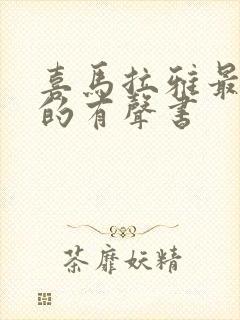 喜馬拉雅最
的有聲書
茶靡妖精